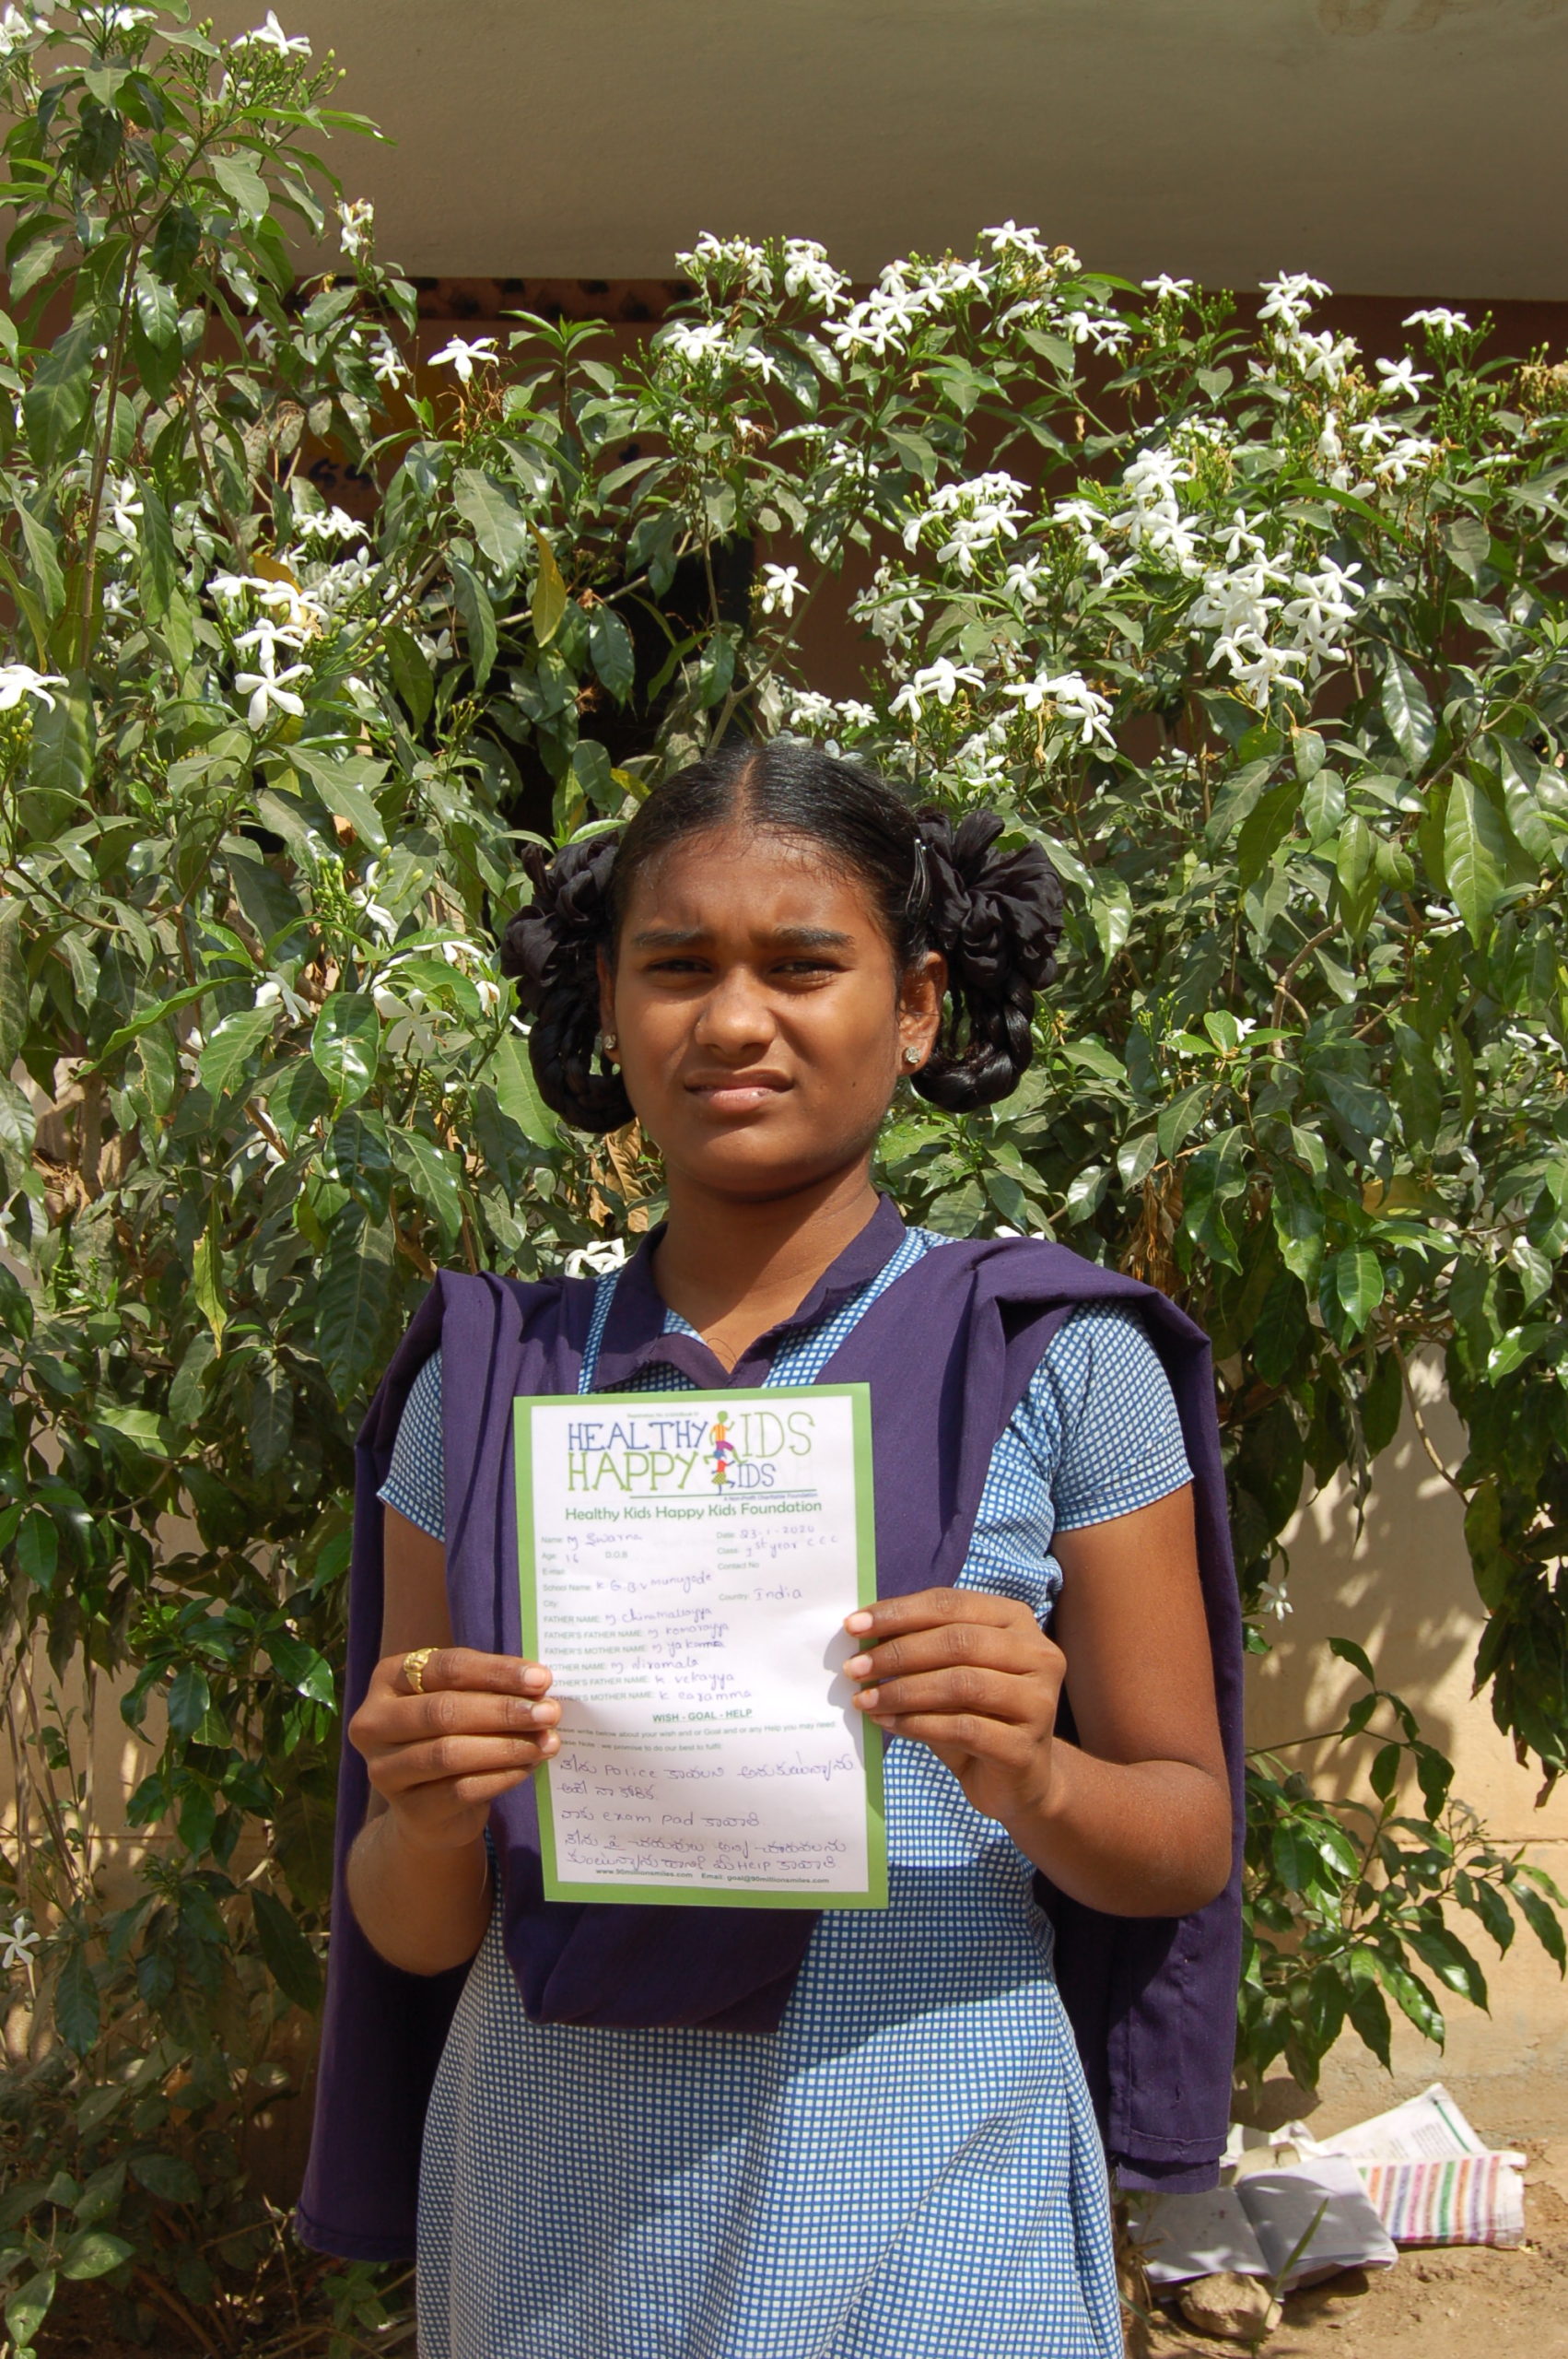 HEALTHY KIDS
HAPPY KIDS
A Non-Profit Charitable Foundation
Healthy Kids Happy Kids Foundation
Name: M Swarna Date: 23-1-2020
Age: 16 D.O.B Class: 1st year C C C
E-mail: Contact No
School Name: K G.B.V munugode
City: Country: India
FATHER NAME: M Chinamallayya
FATHER'S FATHER NAME: M Komarayya
FATHER'S MOTHER NAME: M yakamma
MOTHER NAME: M. Niramala
MOTHER'S FATHER NAME: K
MOTHER'S MOTHER NAME: K
WISH - GOAL - HELP
Please write below about your wish and or Goal and or any Help you may need:
Please Note : we promise to do our best to fulfil
నేను Police కావాలని అనుకుంటున్నాను
అదే నా కోరిక
నాకు exam pad కావాలి
నేను పై చదువులు
HELP కావాలి
www.90millionsmiles.com Email: goal@90millionsmiles.com